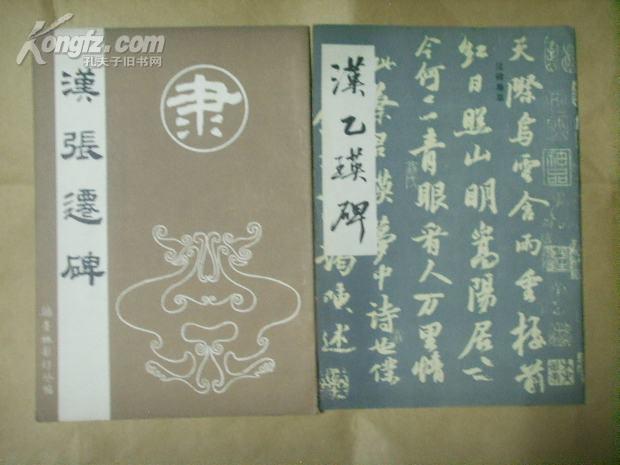 Kongfz.com
孔夫子旧书网
漢張遷碑
隶
漢乙瑛碑
天際烏雲含雨重樓前
紅日照山明嵩陽居士
今何在青眼看人万里情
此蔡君謨夢中詩也僕